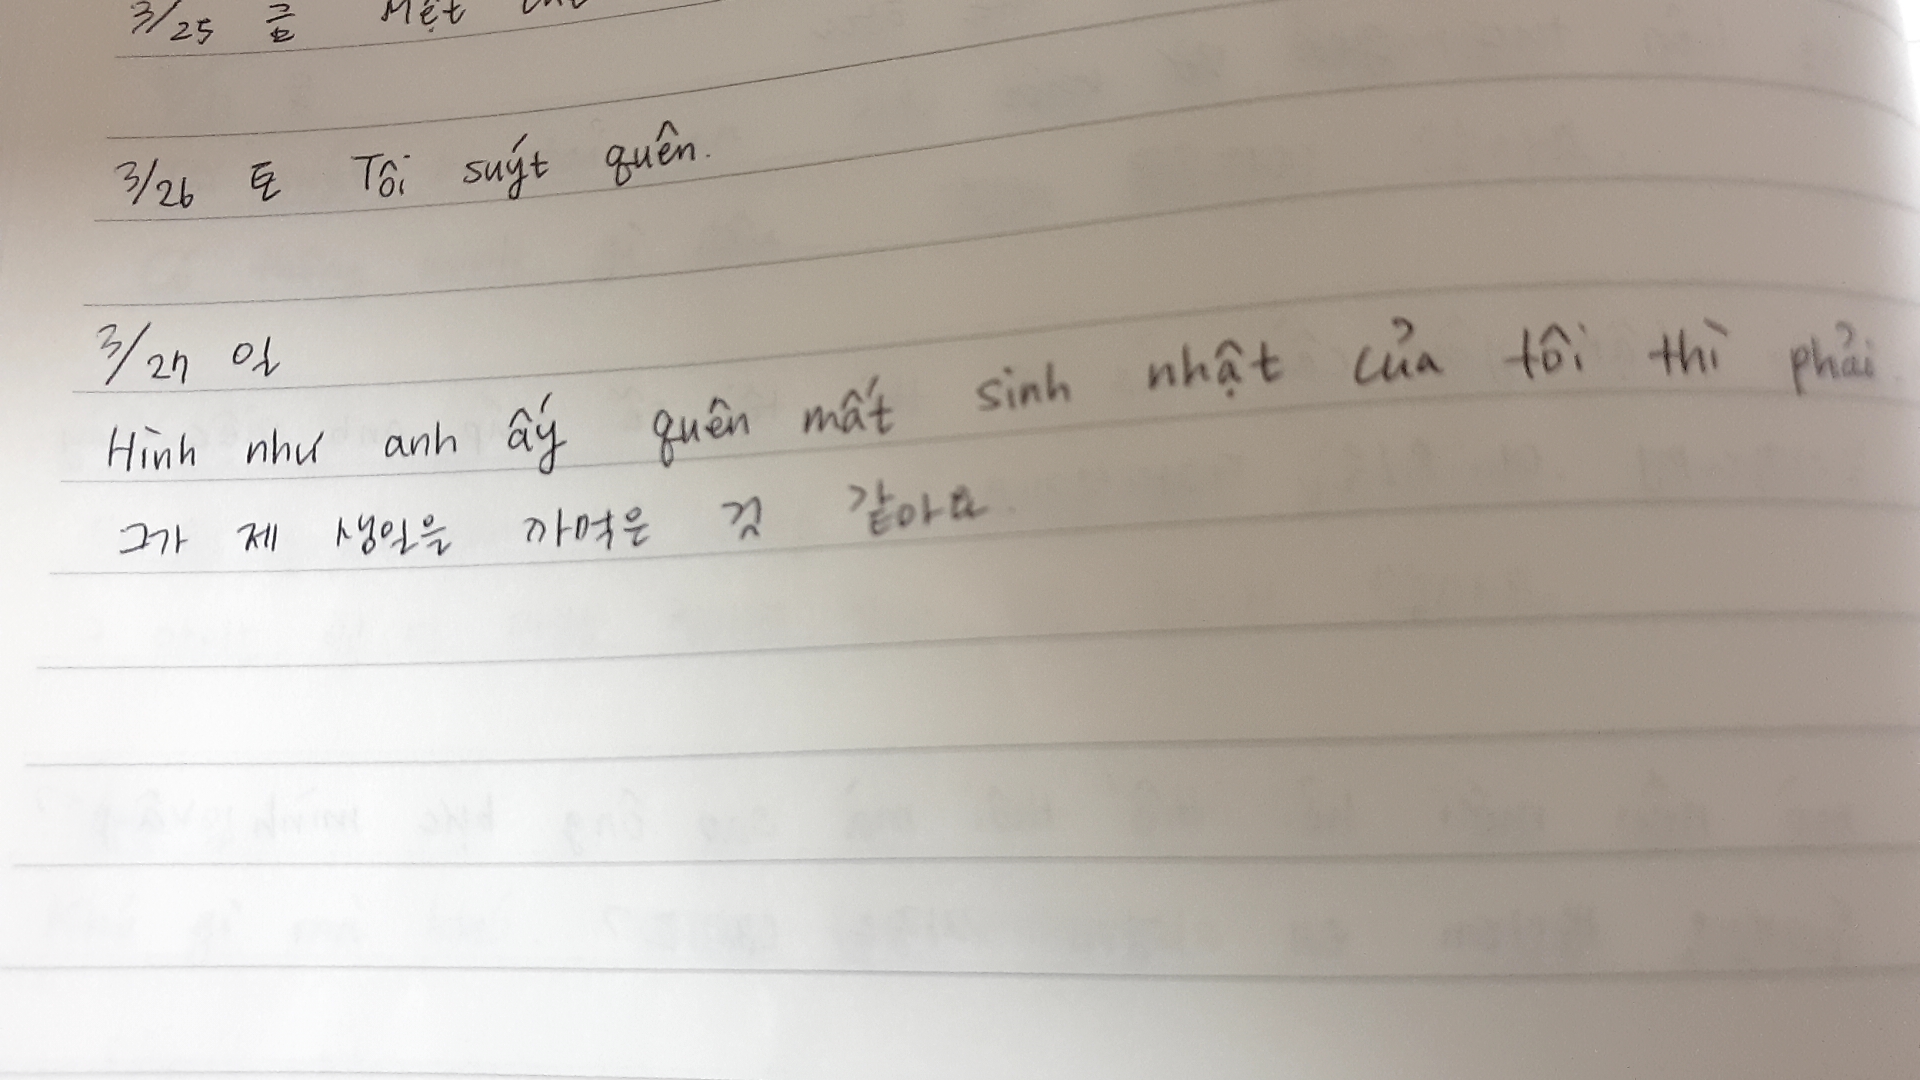 3/25 금 Mệt
3/26 토 Tôi suýt quên.
3/27 일
Hình như anh ấy quên mất sinh nhật của tôi thì phải
그가 제 생일을 까먹은 것 같아요.